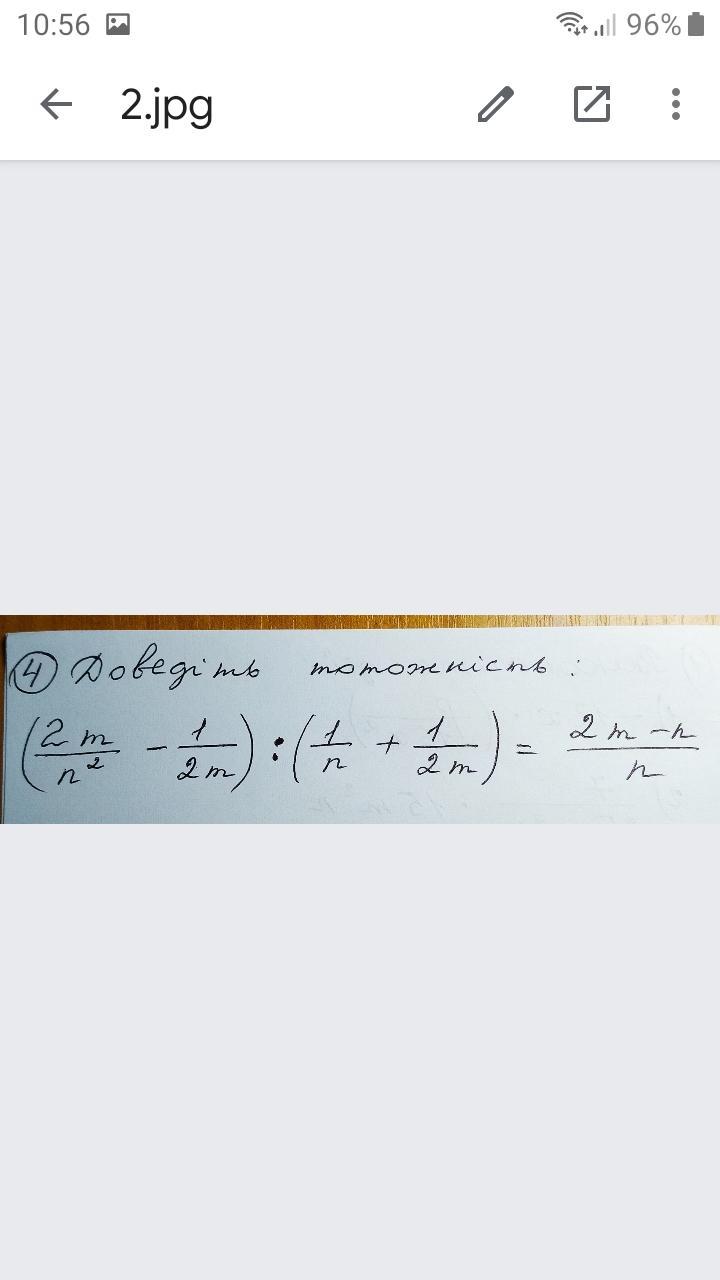 10:56 96%
2.jpg
④ Доведіть тотожність:
(2m/n² - 1/2m) : (1/n + 1/2m) = 2m-n/n